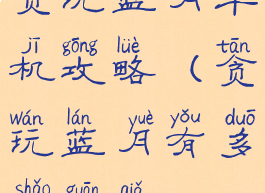 贪玩蓝月单
jī gōng lüè tān
机攻略（贪
wán lán yuè yǒu duō
玩蓝月有多
shǎo guān qiǎ